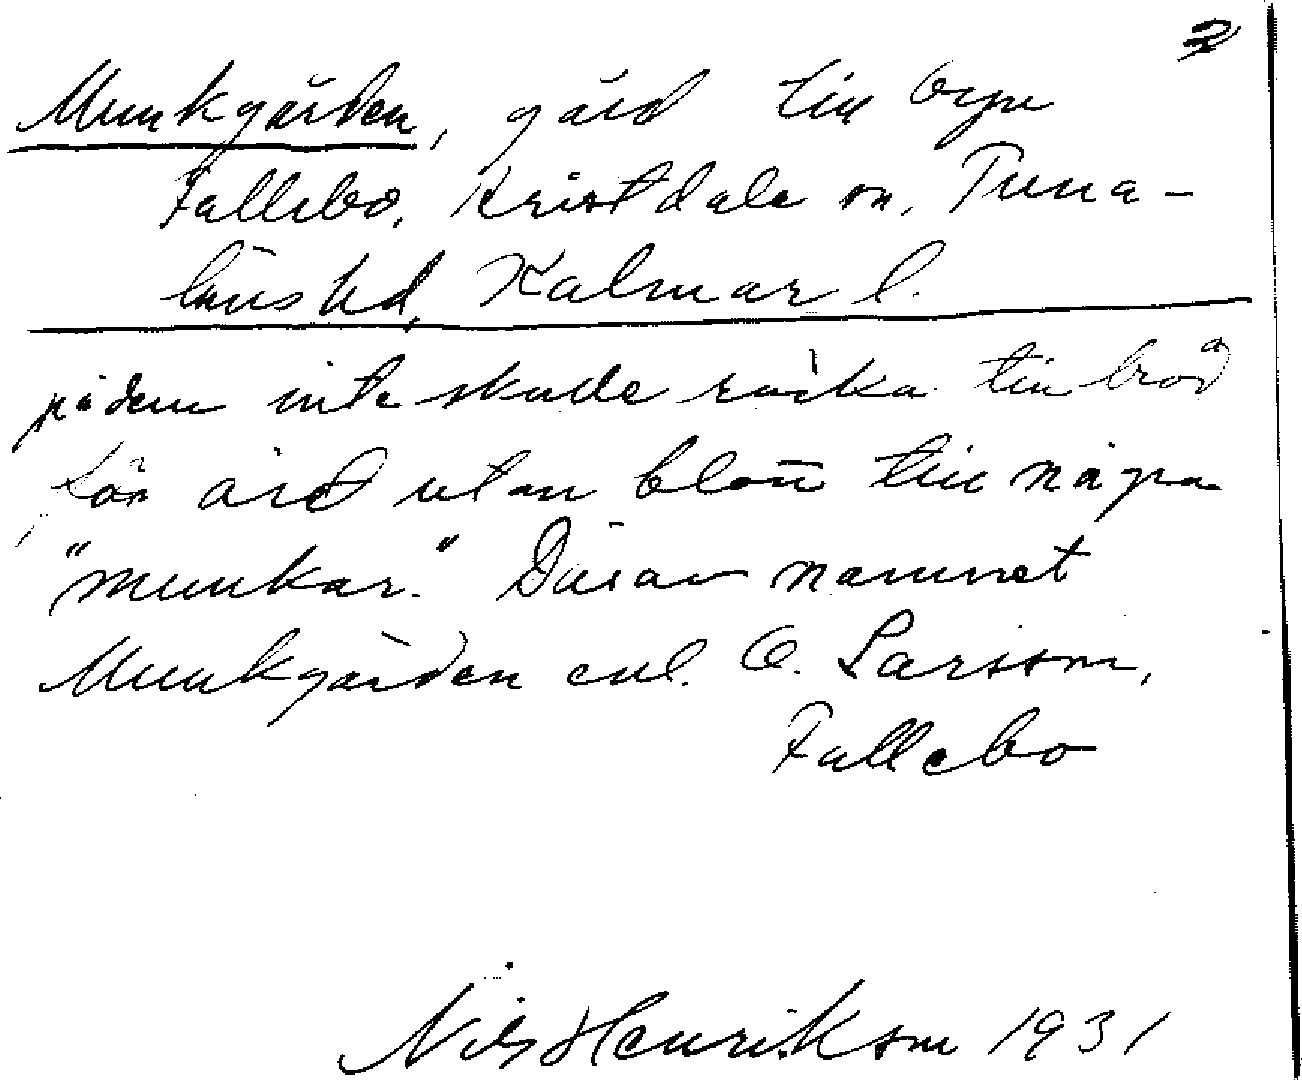 2
Munkgården, gård till byn
Fallebo, Kristdala sn, Tuna-
läns hd, Kalmar l.
på dem inte skulle räcka till bröd
för året utan blott till några
"munkar." Därav namnet
Munkgården enl. O. Larsson,
Fallebo
Nils Henrikson 1931